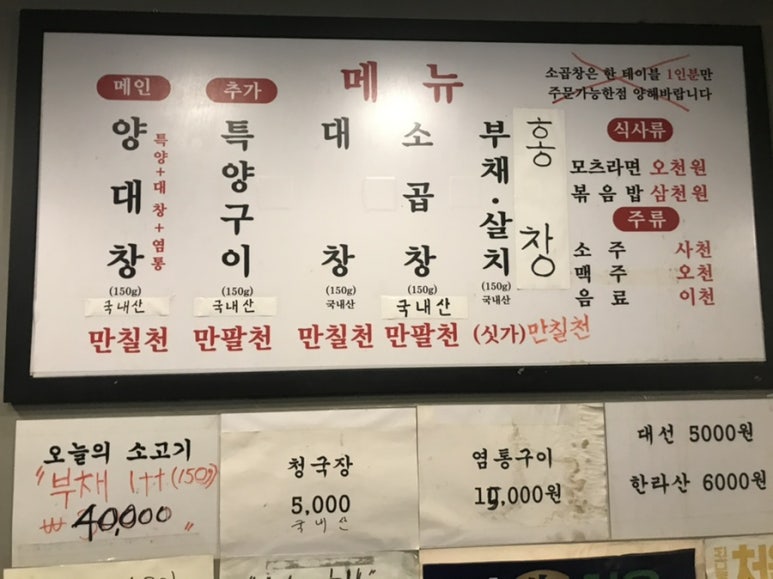 메뉴
소곱창은 한 테이블 1인분만
주문가능한점 양해바랍니다
메인
양대창
특양+대창+염통
(150g)
국내산
만칠천
추가
특양구이
(150g)
국내산
만팔천
대창
(150g)
국내산
만칠천
소곱창
(150g)
국내산
만팔천
부채·살치
(150g)
국내산
(싯가)
홍창
만칠천
식사류
모츠라면 오천원
볶음밥 삼천원
주류
소주 사천
맥주 오천
음료 이천
오늘의 소고기
"부채 1++ (150g)
₩ 40,000 "
청국장
5,000
국내산
염통구이
15,000원
대선 5000원
한라산 6000원